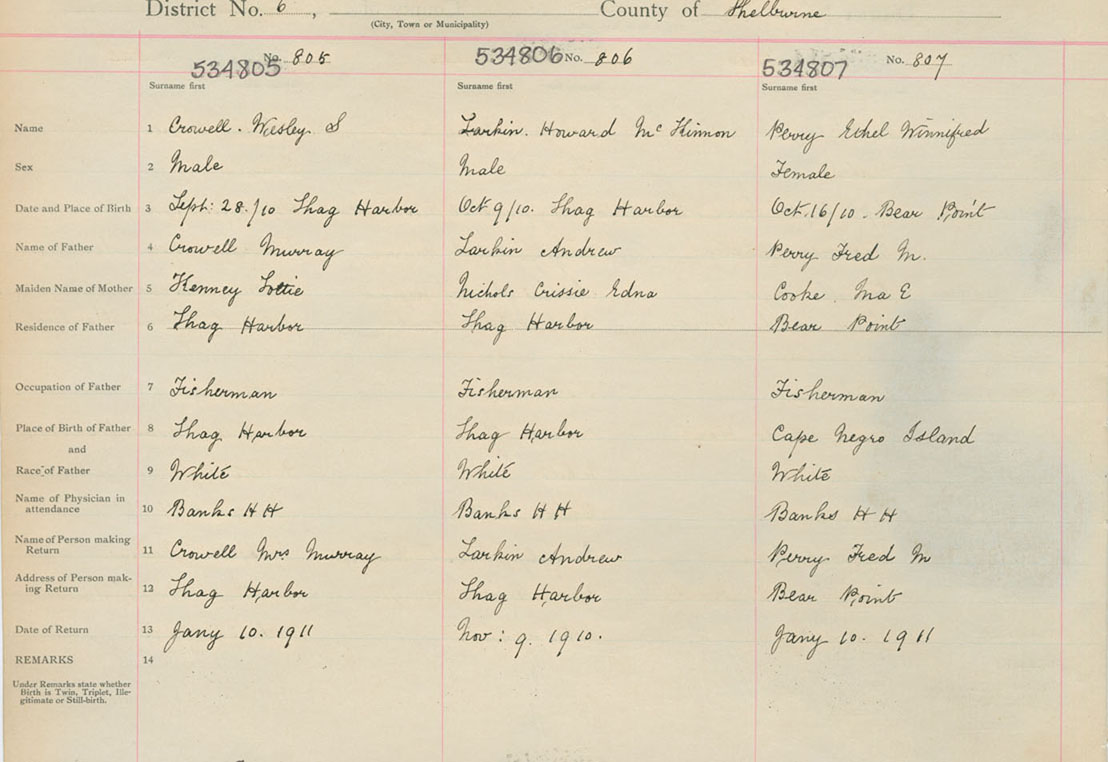 District No. 6, County of Shelburne
(City, Town or Municipality)
534805 No. 805 534806 No. 806 534807 No. 807
Surname first Surname first Surname first
Name 1 Crowell. Wesley S Larkin. Howard McKinnon Perry Ethel Winnifred
Sex 2 Male Male Female
Date and Place of Birth 3 Sept: 28./10 Shag Harbor Oct 9/10. Shag Harbor Oct. 16/10. Bear Point
Name of Father 4 Crowell Murray Larkin Andrew Perry Fred M.
Maiden Name of Mother 5 Kenney Lottie Nichols Crissie Edna Cooke Ina E
Residence of Father 6 Shag Harbor Shag Harbor Bear Point
Occupation of Father 7 Fisherman Fisherman Fisherman
Place of Birth of Father 8 Shag Harbor Shag Harbor Cape Negro Island
and
Race of Father 9 White White White
Name of Physician in
attendance 10 Banks H H Banks H H Banks H H
Name of Person making
Return 11 Crowell Mrs Murray Larkin Andrew Perry Fred M
Address of Person mak-
ing Return 12 Shag Harbor Shag Harbor Bear Point
Date of Return 13 Jany 10. 1911 Nov: 9. 1910. Jany 10. 1911
REMARKS 14
Under Remarks state whether
Birth is Twin, Triplet, Ille-
gitimate or Still-birth.